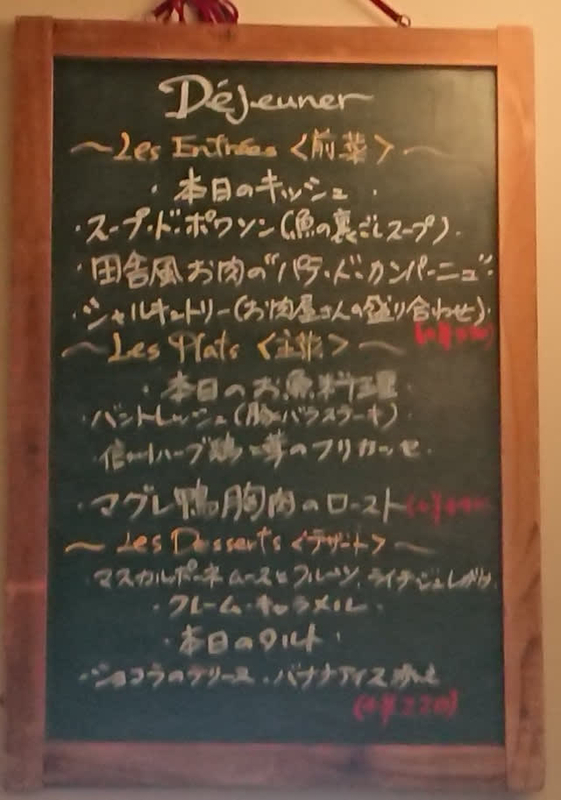 Déjeuner
~ Les Entrées <前菜> ~
・本日のキッシュ・
・スープ・ド・ポワソン(魚の裏ごしスープ)・
・田舎風お肉の"パテ・ド・カンパーニュ"・
・シャルキュトリー(お肉屋さんの盛り合わせ)・
~ Les Plats <主菜> ~
・本日のお魚料理
・バントレッシュ(豚バラステーキ)
・信州ハーブ鶏と茸のフリカッセ・
・マグレ鴨胸肉のロースト
~ Les Desserts <デザート> ~
・マスカルポーネムースとフルーツ、ライチジュレがけ
・クレーム・キャラメル・
・本日のタルト・
・ショコラのテリーヌ・バナナアイス添え
(+¥220)